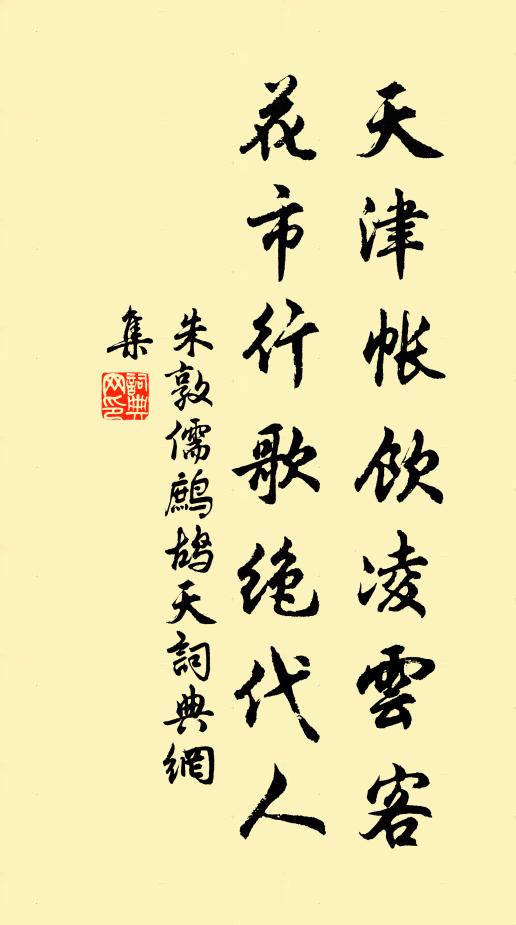 天津帐饮凌雲客
花市行歌绝代人
朱敦儒鹧鸪天詞典網
集
詞典网印